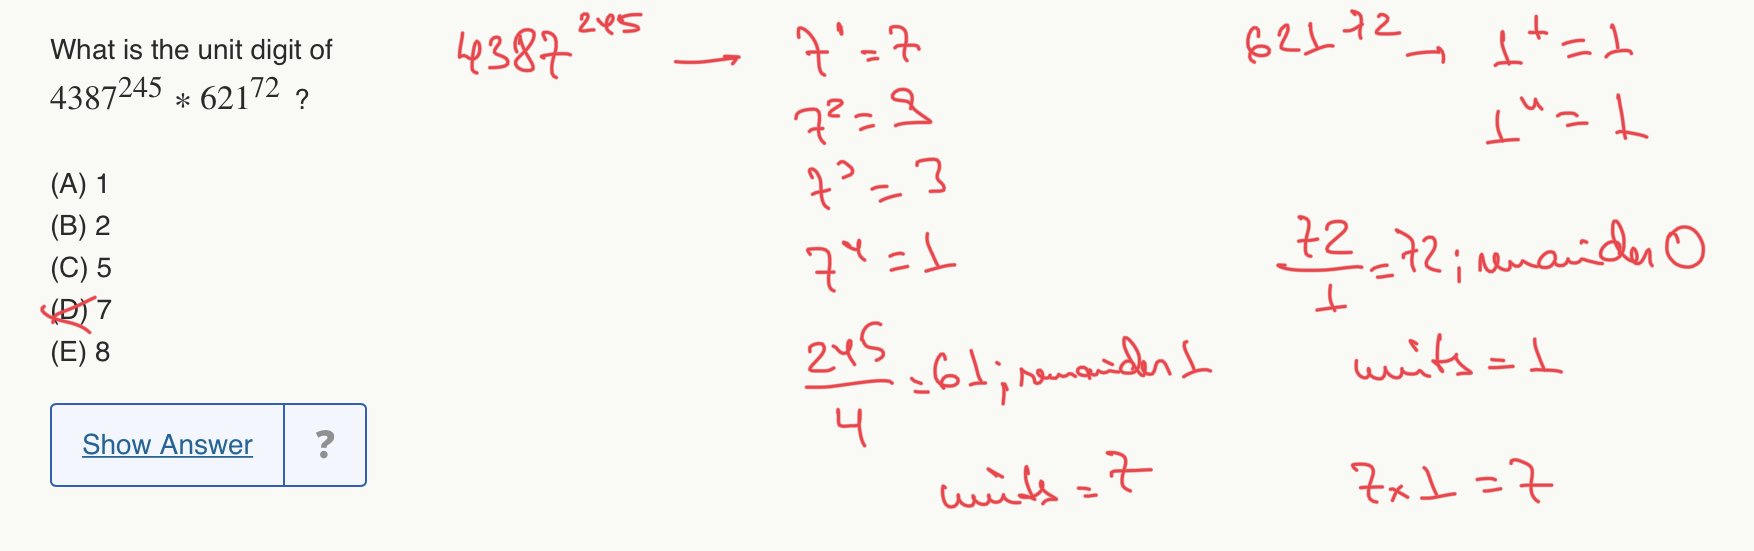 What is the unit digit of
4387^245 * 621^72 ?
(A) 1
(B) 2
(C) 5
(D) 7
(E) 8
Show Answer
?
4387^245 → 7^1 = 7
7^2 = 9
7^3 = 3
7^4 = 1
245/4 = 61; remainder 1
units = 7
621^72 → 1^1 = 1
1^4 = 1
72/1 = 72; remainder 0
units = 1
7 x 1 = 7